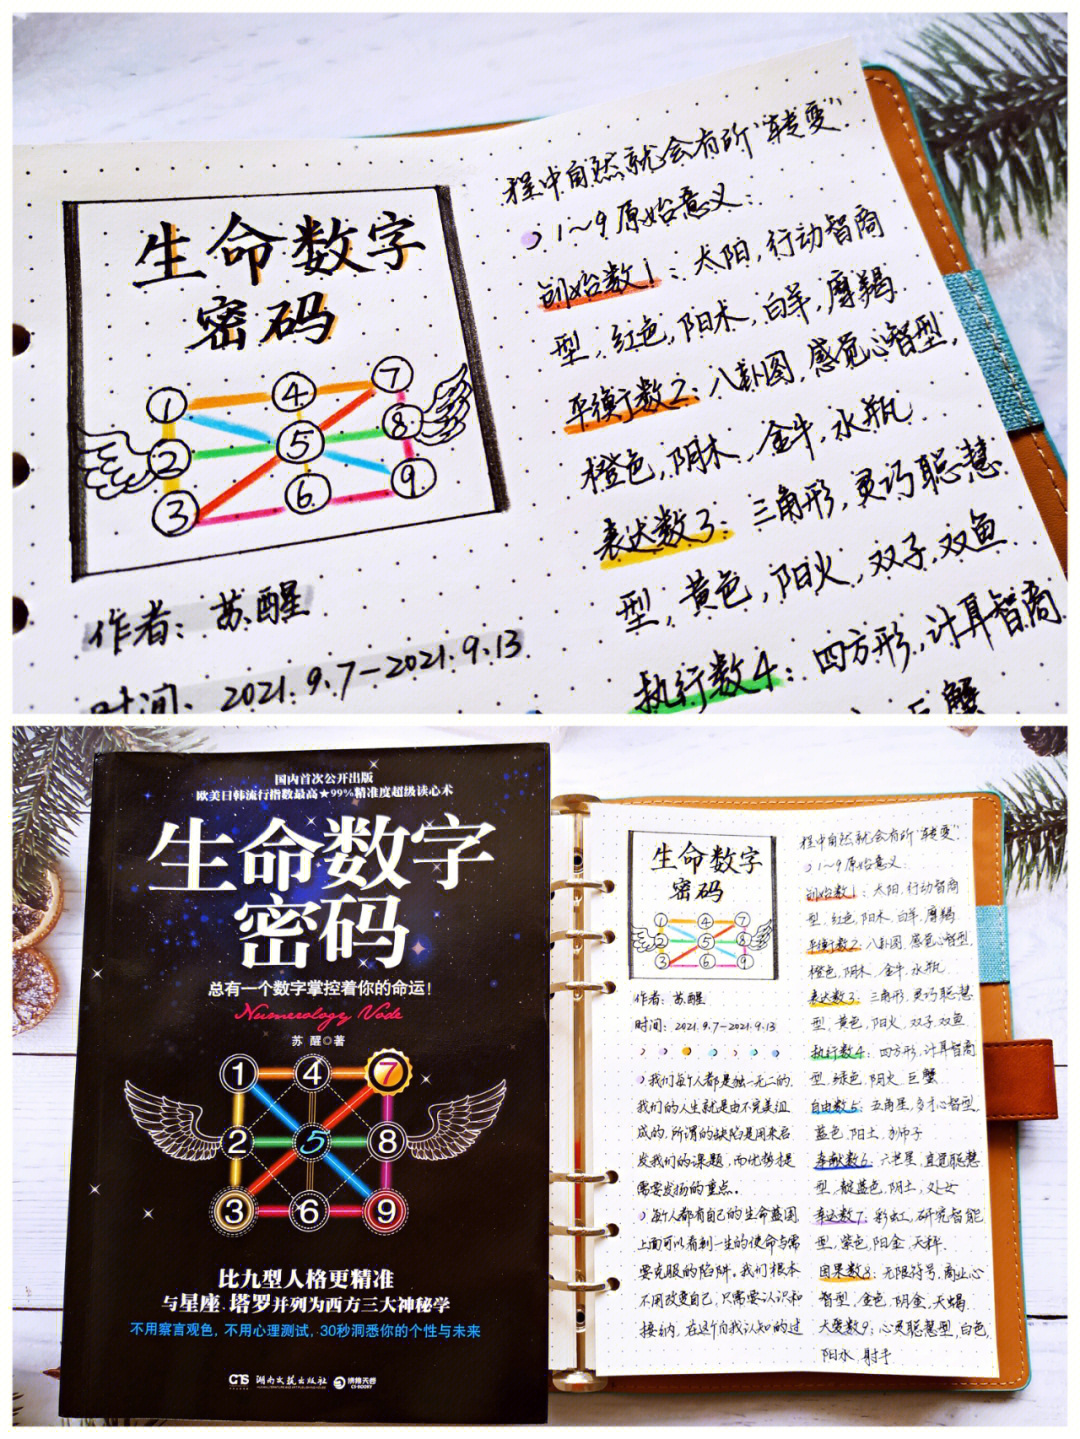 生命数字
密码
1
4
7
2
5
8
3
6
9
作者：苏醒
时间：2021.9.7-2021.9.13
程中自然就会有所“转变”
1~9原始意义：
创始数1：太阳，行动智商
型，红色，阳木，白羊，摩羯
平衡数2：八卦图，感觉心智型，
橙色，阴木，金牛，水瓶
表达数3：三角形，灵巧聪慧
型，黄色，阳火，双子，双鱼
执行数4：四方形，计算智商
巨蟹
国内首次公开出版
欧美日韩流行指数最高★99%精准度超级读心术
生命数字
密码
总有一个数字掌控着你的命运！
Numerology Node
苏醒◎著
1
4
7
2
5
8
3
6
9
比九型人格更精准
与星座、塔罗并列为西方三大神秘学
不用察言观色，不用心理测试，30秒洞悉你的个性与未来
湖南文艺出版社
博集天卷
CS-BOOKY
生命数字
密码
1
4
7
2
5
8
3
6
9
作者：苏醒
时间：2021.9.7-2021.9.13
我们每个人都是独一无二的，
我们的人生就是由不完美组
成的，所谓的缺陷是用来启
发我们的课题，而优势是
需要发扬的重点。
每个人都有自己的生命蓝图
上面可以看到一生的使命与需
要克服的陷阱。我们根本
不用改变自己，只需要认识和
接纳，在这个自我认知的过
程中自然就会有所“转变”
1~9原始意义：
创始数1：太阳，行动智商
型，红色，阳木，白羊，摩羯
平衡数2：八卦图，感觉心智型，
橙色，阴木，金牛，水瓶
表达数3：三角形，灵巧聪慧
型，黄色，阳火，双子，双鱼
执行数4：四方形，计算智商
型，绿色，阴火，巨蟹
自由数5：五角星，多才心智型，
蓝色，阳土，狮子
奉献数6：六芒星，直觉聪慧
型，靛蓝色，阴土，处女
表达数7：彩虹，研究智能
型，紫色，阳金，天秤
因果数8：无限符号，商业心
智型，金色，阴金，天蝎
大爱数9：心灵聪慧型，白色，
阳水，射手